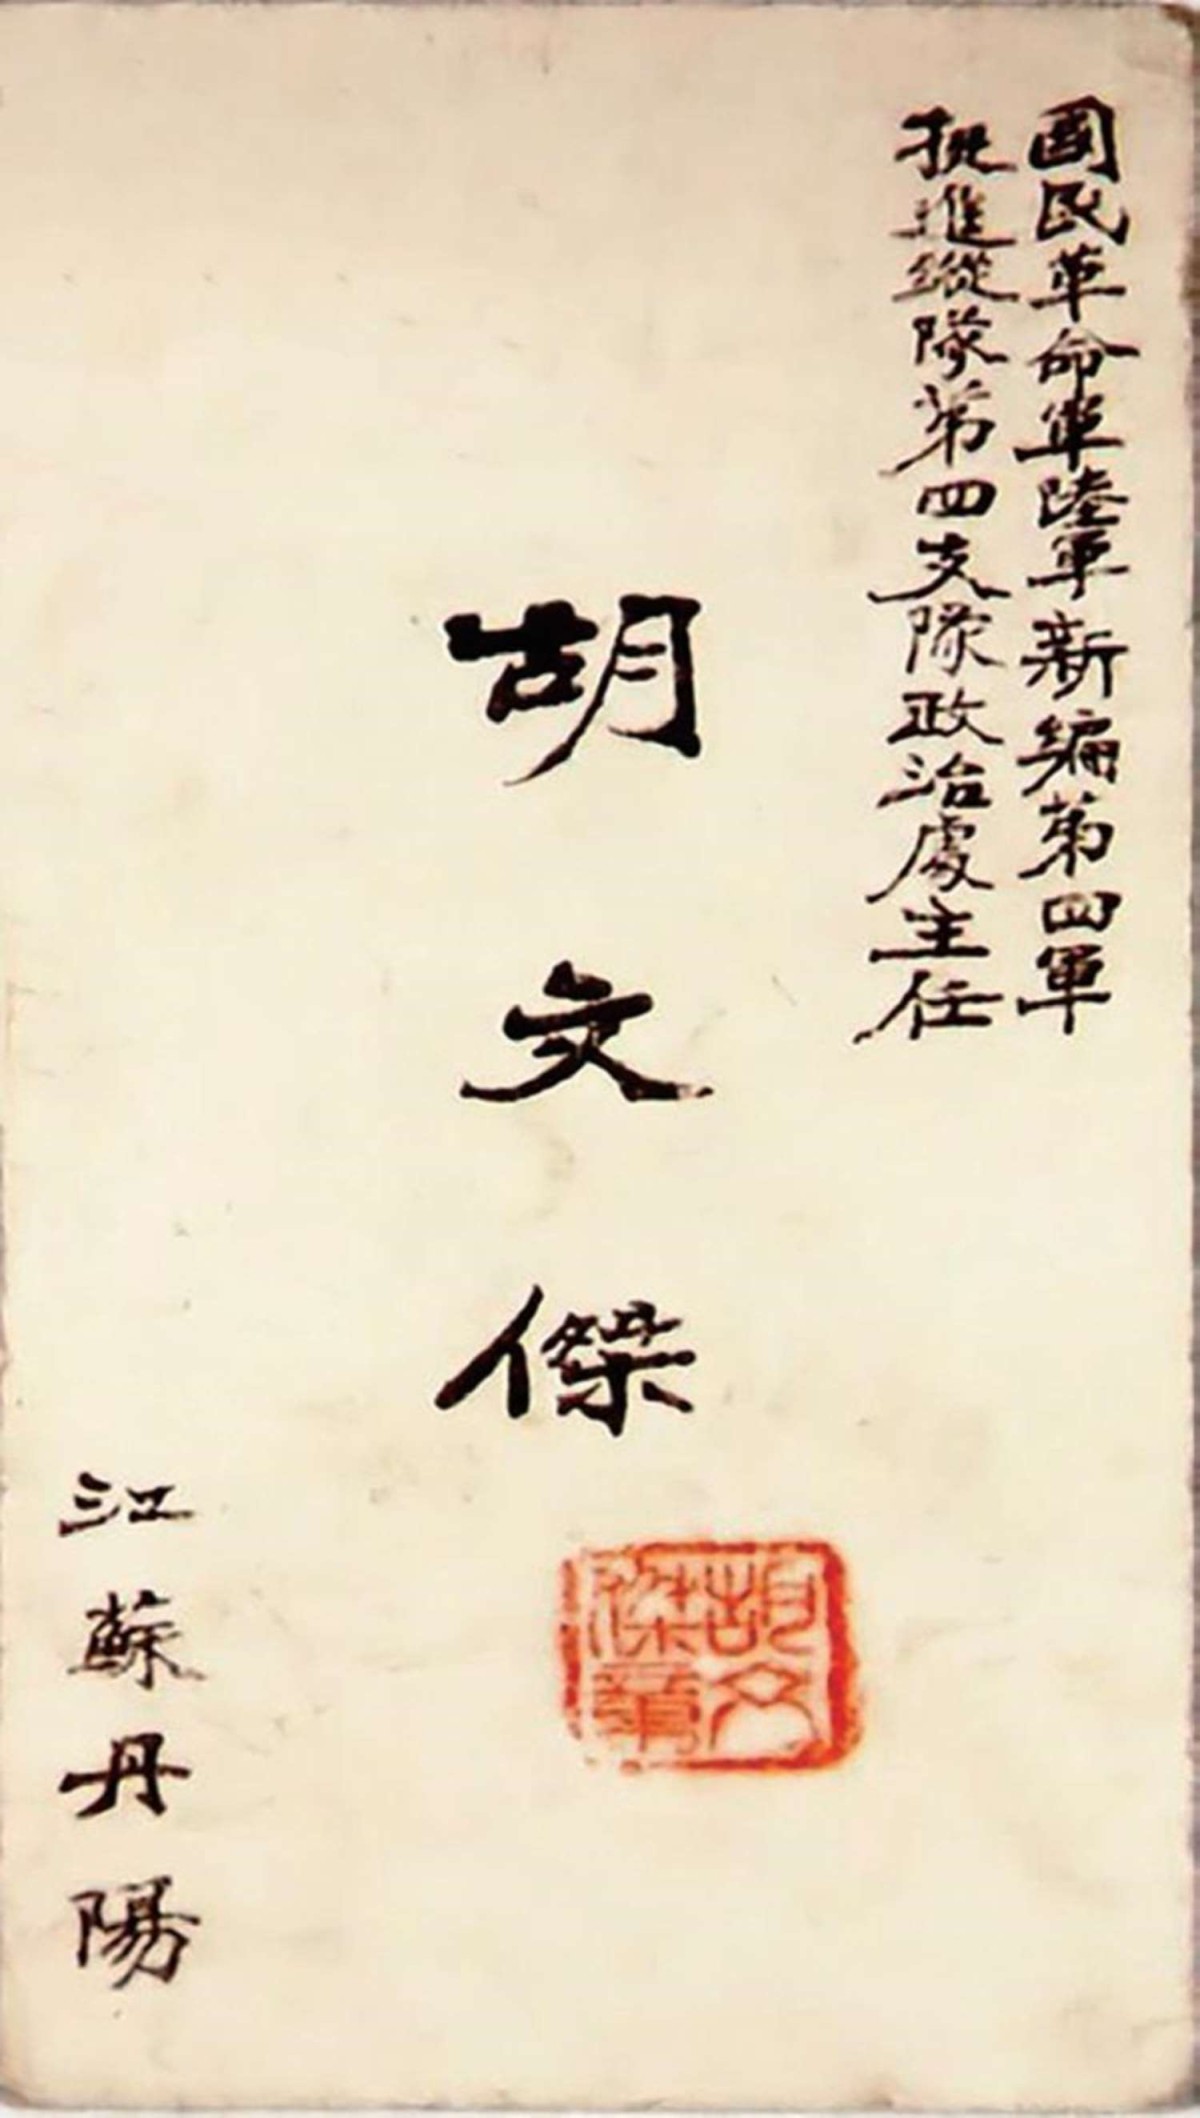 國民革命軍陸軍新編第四軍
挺進縱隊第四支隊政治處主任
胡文傑
胡文
傑章
江蘇丹陽